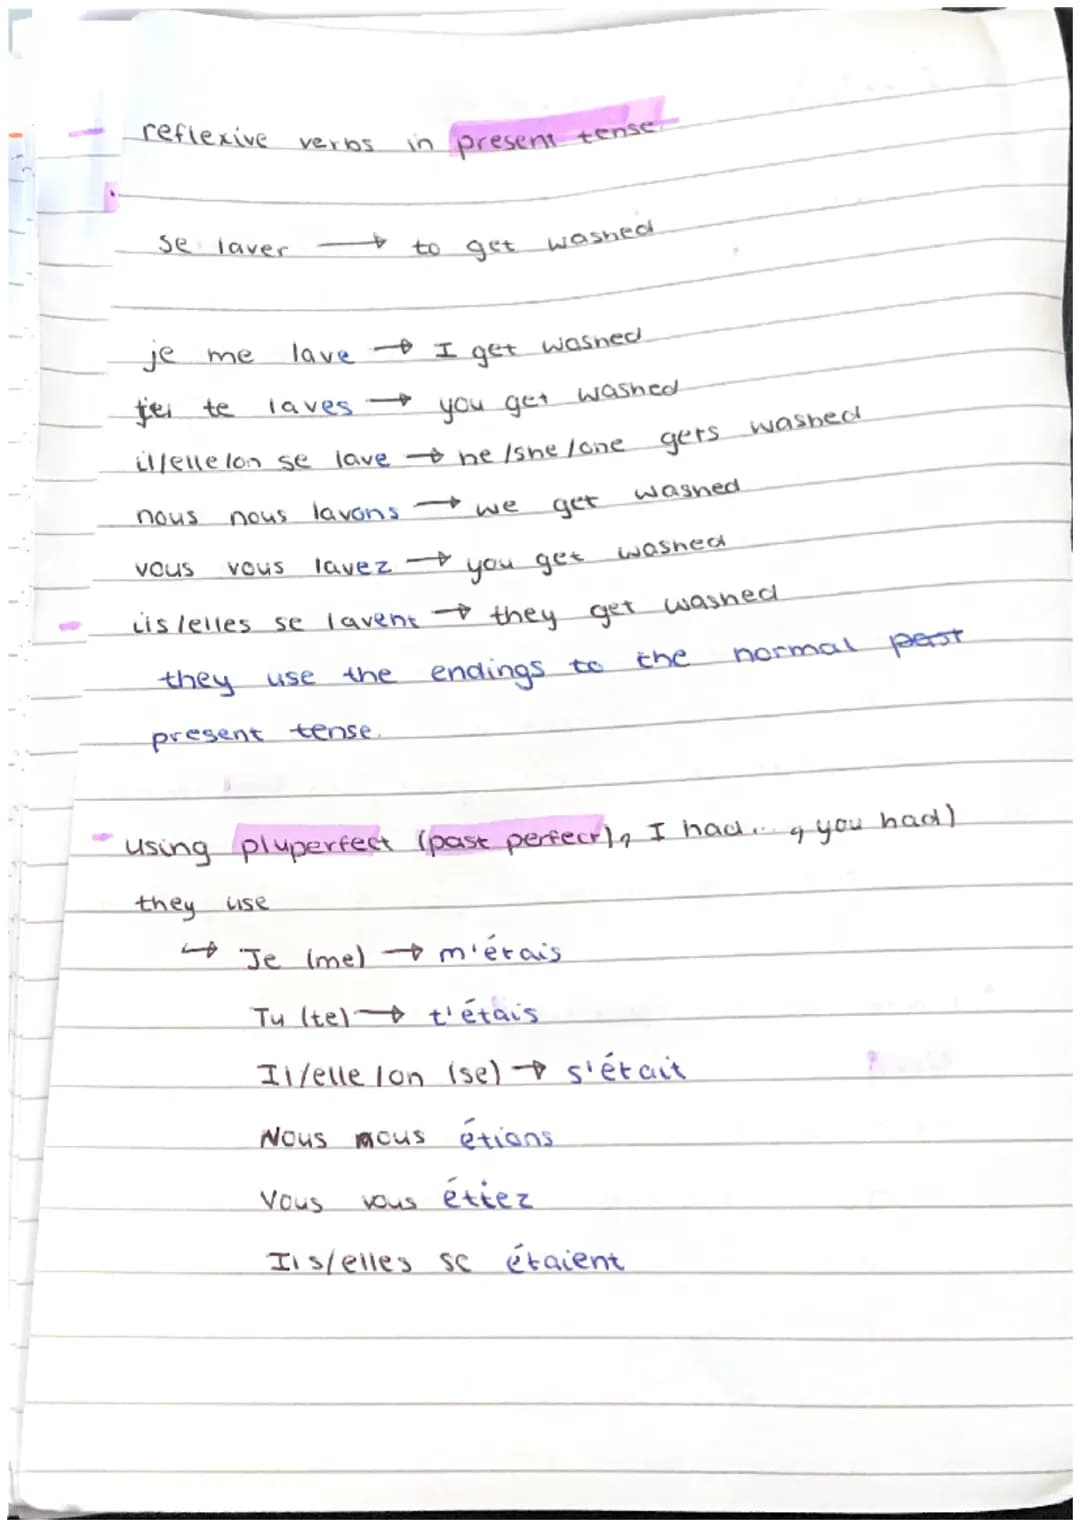 reflexive verbs in present tense
se laver → to get washed
je me lave → I get washed
tu te laves → you get washed
il/elle/on se lave → he/she/one gets washed
nous nous lavons → we get washed
vous vous lavez → you get washed
ils/elles se lavent → they get washed
they use the endings to the normal past
present tense.
using pluperfect (past perfect), I had... , you had)
they use
↪ Je (me) → m'étais
Tu (te) → t'étais
Il/elle/on (se) → s'était
Nous nous étions
Vous vous étiez
Ils/elles se étaient